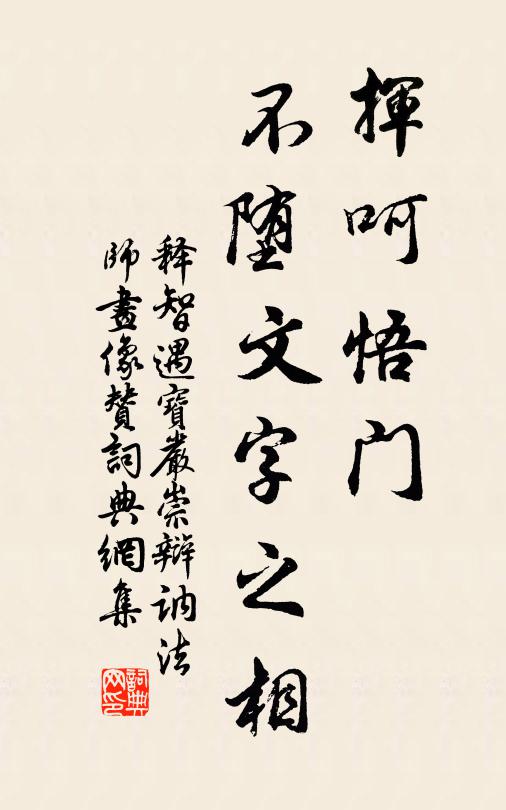 揮呵悟门
不堕文字之相
释智遇寶嚴崇辯訥法
師畫像赞詞典網集
詞典网印